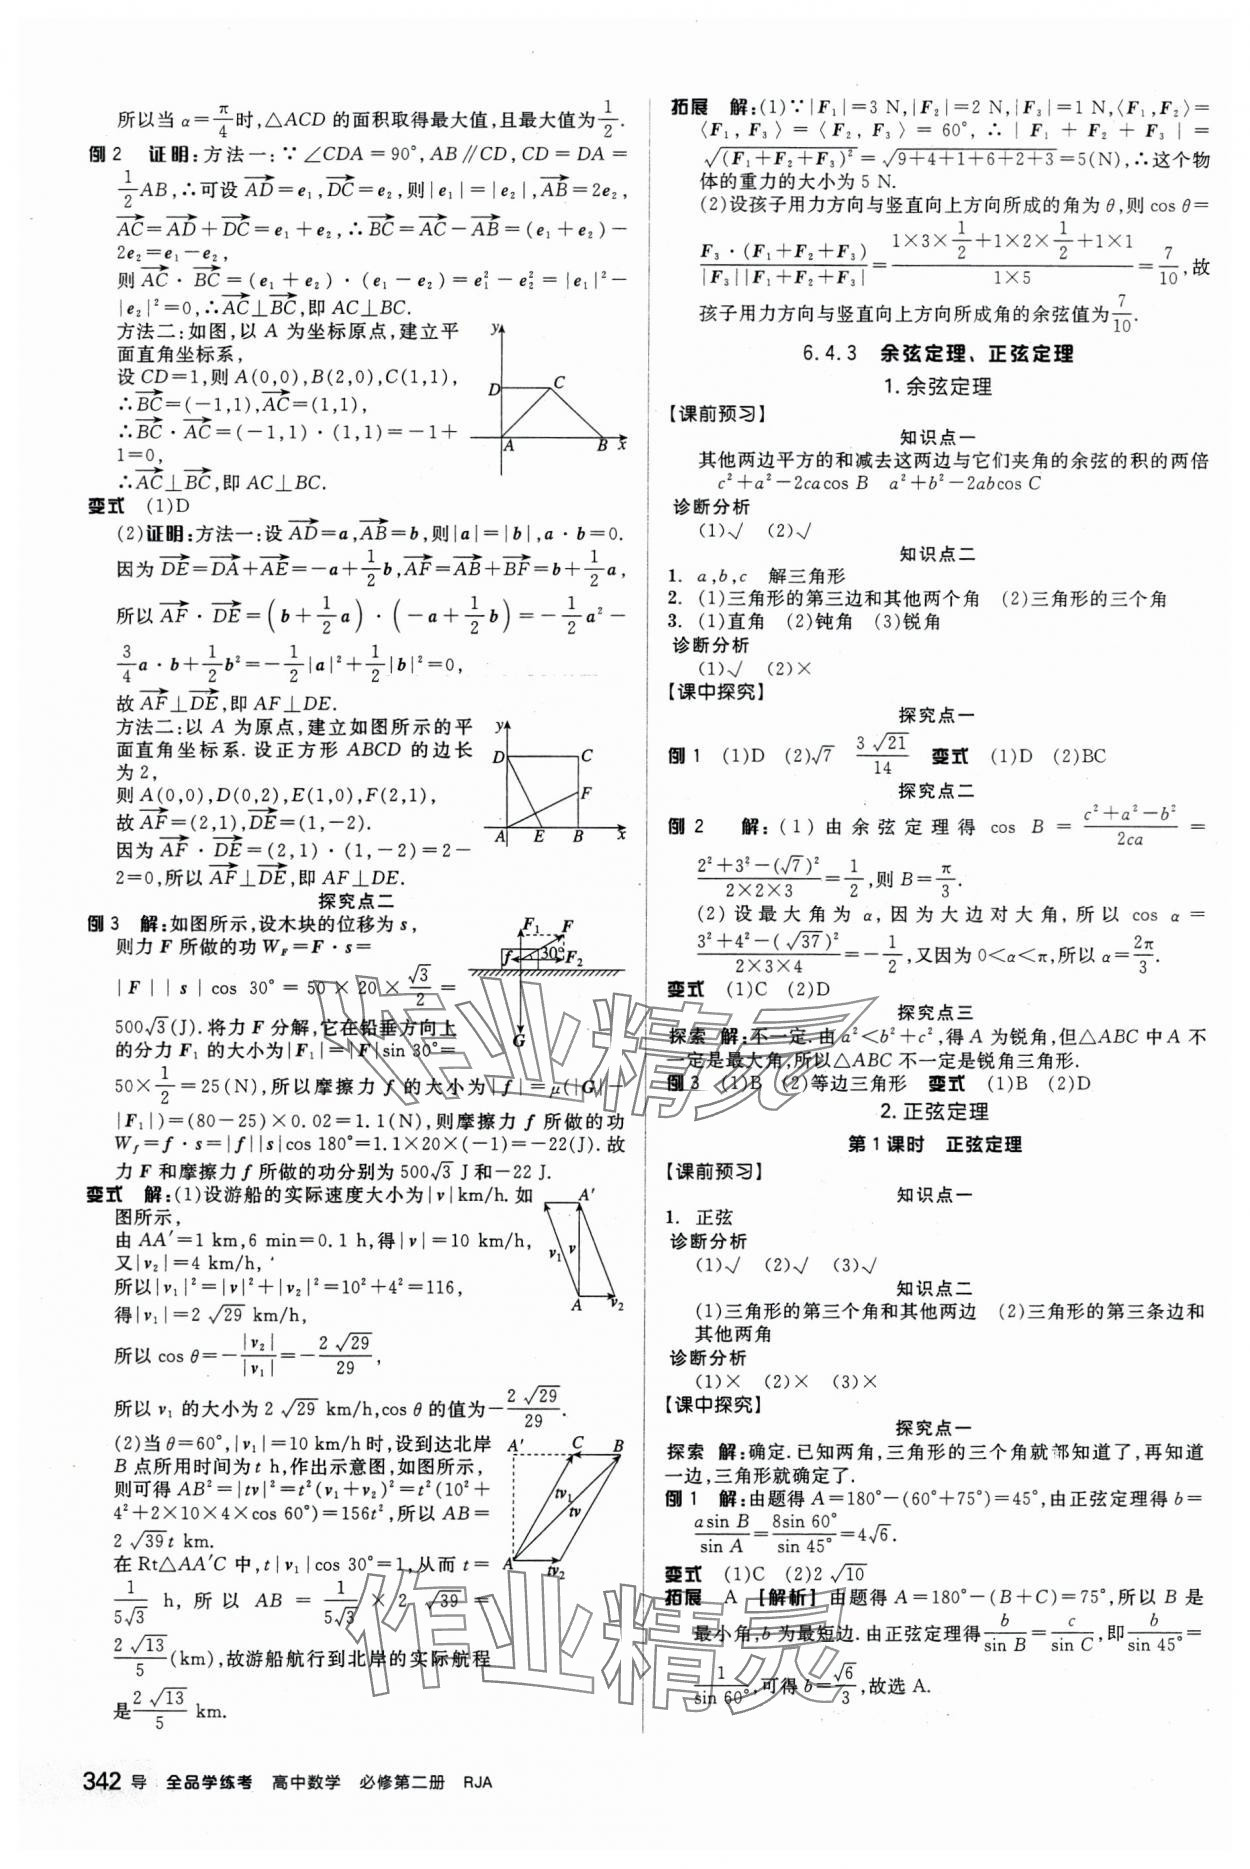 所以当 α=π/4时,△ACD 的面积取得最大值,且最大值为1/2.
例2 证明:方法一:∵∠CDA=90°,AB∥CD,CD=DA=
1/2AB,∴可设 AD=e₁,DC=e₂,则|e₁|=|e₂|,AB=2e₂,
AC=AD+DC=e₁+e₂,∴BC=AC-AB=(e₁+e₂)-
2e₂=e₁-e₂,
则 AC·BC=(e₁+e₂)·(e₁-e₂)=e₁²-e₂²=|e₁|²-
|e₂|²=0,∴AC⊥BC,即 AC⊥BC.
方法二:如图,以 A 为坐标原点,建立平
面直角坐标系,
设 CD=1,则 A(0,0),B(2,0),C(1,1),
∴BC=(-1,1),AC=(1,1),
∴BC·AC=(-1,1)·(1,1)=-1+
1=0,
∴AC⊥BC,即 AC⊥BC.
y
D
C
A
B
x
变式 (1)D
(2)证明:方法一:设 AD=a,AB=b,则|a|=|b|,a·b=0.
因为 DE=DA+AE=-a+1/2b,AF=AB+BF=b+1/2a,
所以 AF·DE=(b+1/2a)·(-a+1/2b)=-1/2a²-
3/4a·b+1/2b²=-1/2|a|²+1/2|b|²=0,
故 AF⊥DE,即 AF⊥DE.
方法二:以 A 为原点,建立如图所示的平
面直角坐标系.设正方形 ABCD 的边长
为2,
则 A(0,0),D(0,2),E(1,0),F(2,1),
故 AF=(2,1),DE=(1,-2).
因为 AF·DE=(2,1)·(1,-2)=2-
2=0,所以 AF⊥DE,即 AF⊥DE.
y
D
C
F
A
E
B
x
探究点二
例3 解:如图所示,设木块的位移为 s,
则力 F 所做的功 W_F=F·s=
|F||s|cos 30°=50×20×√3/2=
500√3(J).将力 F 分解,它在铅垂方向上
的分力 F₁ 的大小为|F₁|=|F|sin 30°=
50×1/2=25(N),所以摩擦力 f 的大小为|f|=μ(|G|-
|F₁|)=(80-25)×0.02=1.1(N),则摩擦力 f 所做的功
W_f=f·s=|f||s|cos 180°=1.1×20×(-1)=-22(J).故
力 F 和摩擦力 f 所做的功分别为500√3 J和-22 J.
F₁
F
f
30°
F₂
G
变式 解:(1)设游船的实际速度大小为|v|km/h.如
图所示,
由 AA'=1 km,6 min=0.1 h,得|v|=10 km/h,
又|v₂|=4 km/h,
所以|v₁|²=|v|²+|v₂|²=10²+4²=116,
得|v₁|=2√29 km/h,
所以 cos θ=-|v₂|/|v₁|=-2√29/29,
所以 v₁ 的大小为 2√29 km/h,cos θ 的值为-2√29/29.
A'
v₁
v
A
v₂
(2)当 θ=60°,|v₁|=10 km/h时,设到达北岸
B 点所用时间为 t h,作出示意图,如图所示,
则可得 AB²=|tv|²=t²(v₁+v₂)²=t²(10²+
4²+2×10×4×cos 60°)=156t²,所以 AB=
2√39t km.
在 Rt△AA'C 中,t|v₁|cos 30°=1,从而 t=
1/(5√3) h,所以 AB=1/(5√3)×2√39=
2√13/5(km),故游船航行到北岸的实际航程
是2√13/5 km.
A'
C
B
tv₁
tv
A
tv₂
342 导 全品学练考 高中数学 必修第二册 RJA
拓展 解:(1)∵|F₁|=3 N,|F₂|=2 N,|F₃|=1 N,⟨F₁,F₂⟩=
⟨F₁,F₃⟩=⟨F₂,F₃⟩=60°,∴|F₁+F₂+F₃|=
√(F₁+F₂+F₃)²=√9+4+1+6+2+3=5(N),∴这个物
体的重力的大小为 5 N.
(2)设孩子用力方向与竖直向上方向所成的角为 θ,则 cos θ=
F₃·(F₁+F₂+F₃)/|F₃||F₁+F₂+F₃|=(1×3×1/2+1×2×1/2+1×1)/(1×5)=7/10,故
孩子用力方向与竖直向上方向所成角的余弦值为7/10.
6.4.3 余弦定理、正弦定理
1.余弦定理
【课前预习】
知识点一
其他两边平方的和减去这两边与它们夹角的余弦的积的两倍
c²+a²-2cacos B a²+b²-2abcos C
诊断分析
(1)√ (2)√
知识点二
1. a,b,c 解三角形
2. (1)三角形的第三边和其他两个角 (2)三角形的三个角
3. (1)直角 (2)钝角 (3)锐角
诊断分析
(1)√ (2)×
【课中探究】
探究点一
例1 (1)D (2)√7 3√21/14 变式 (1)D (2)BC
探究点二
例2 解:(1)由余弦定理得 cos B=(c²+a²-b²)/2ca=
(2²+3²-(√7)²)/(2×2×3)=1/2,则 B=π/3.
(2)设最大角为 α,因为大边对大角,所以 cos α=
(3²+4²-(√37)²)/(2×3×4)=-1/2,又因为 0<α<π,所以 α=2π/3.
变式 (1)C (2)D
探究点三
探索 解:不一定.由 a²<b²+c²,得 A 为锐角,但△ABC 中 A 不
一定是最大角,所以△ABC 不一定是锐角三角形.
例3 (1)B (2)等边三角形 变式 (1)B (2)D
2.正弦定理
第1课时 正弦定理
【课前预习】
知识点一
1. 正弦
诊断分析
(1)√ (2)√ (3)√
知识点二
(1)三角形的第三个角和其他两边 (2)三角形的第三条边和
其他两角
诊断分析
(1)× (2)× (3)×
【课中探究】
探究点一
探索 解:确定.已知两角,三角形的三个角就都知道了,再知道
一边,三角形就确定了.
例1 解:由题得 A=180°-(60°+75°)=45°,由正弦定理得 b=
asin B/sin A=8sin 60°/sin 45°=4√6.
变式 (1)C (2)2√10
拓展 A [解析] 由题得 A=180°-(B+C)=75°,所以 B 是
最小角,b 为最短边.由正弦定理得b/sin B=c/sin C,即b/sin 45°=
1/sin 60°,可得 b=√6/3,故选 A.
作业精灵
作业精灵